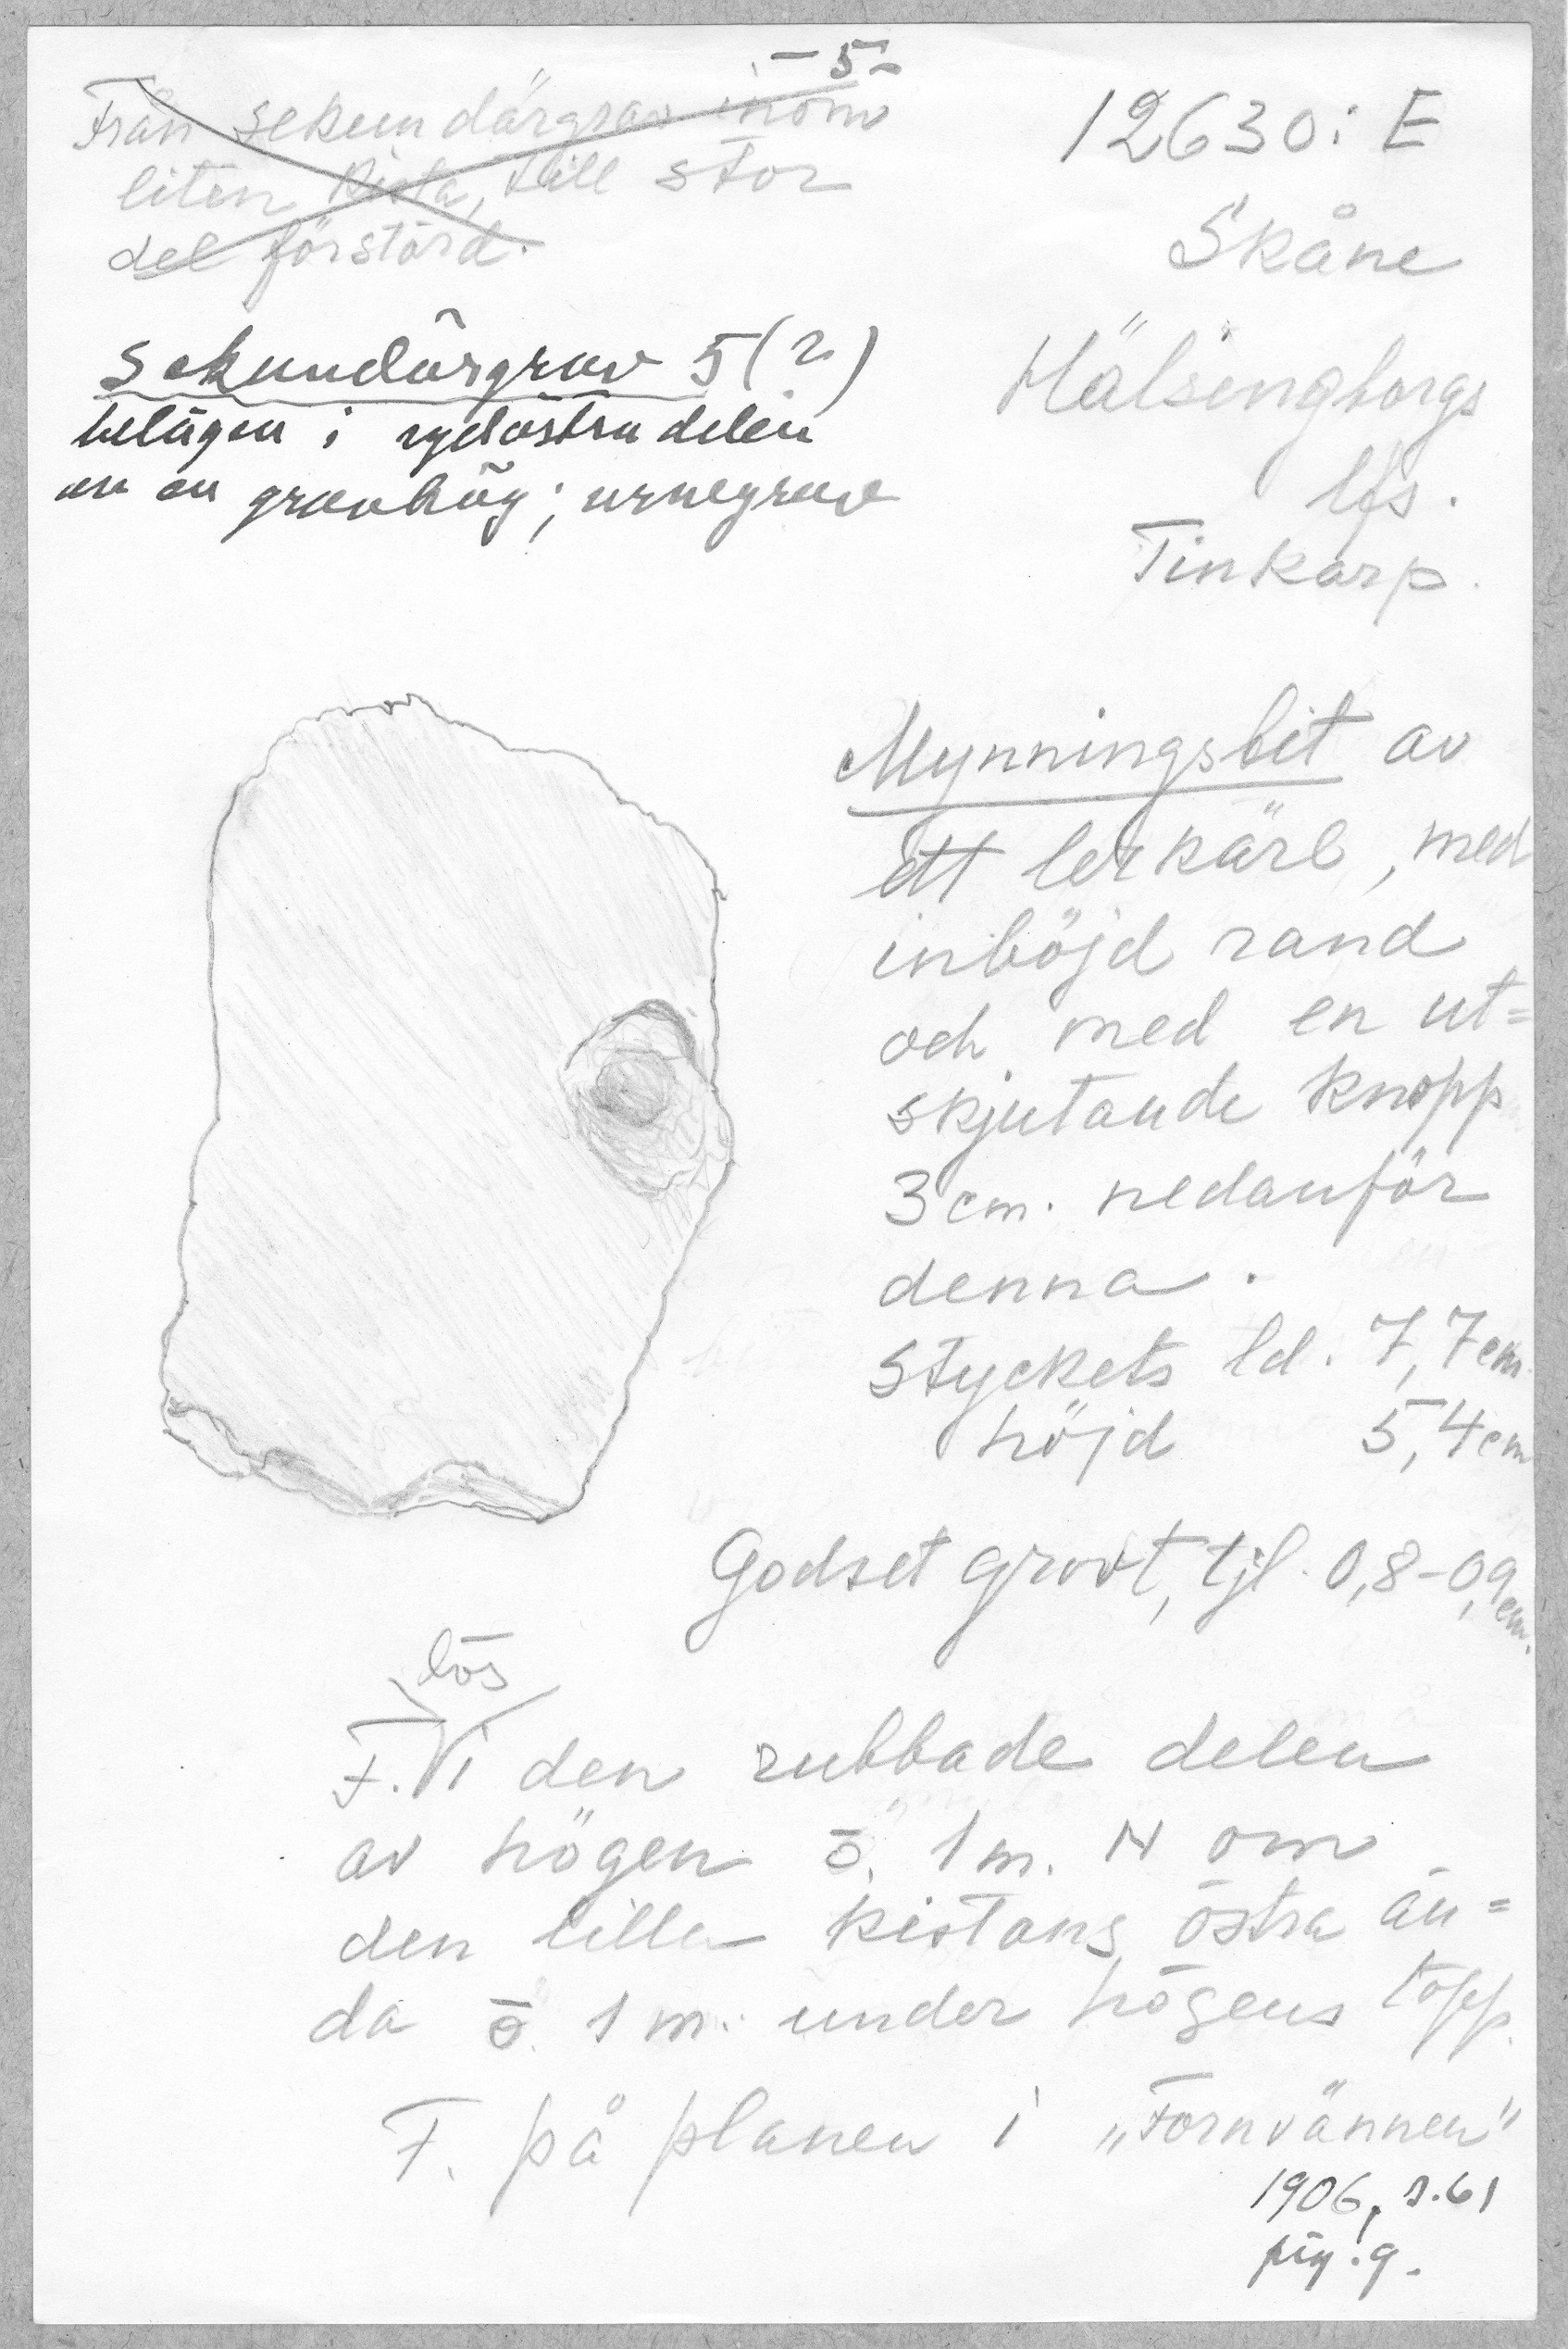 – 5 –
Från sekundärgrav inom
liten kista, till stor
del förstörd.
Sekundärgrav 5(?)
belägen i sydöstra delen
av en gravhög; urnegrav
12630: E
Skåne
Hälsingborgs
lfs.
Tinkarp.
Mynningsbit av
ett lerkärl, med
inböjd rand
och med en ut=
skjutande knopp
3 cm. nedanför
denna.
Styckets ld. 7,7 cm.
höjd 5,4 cm
Godset grovt, tjl. 0,8–0,9 cm.
lös
F. i den rubbade delen
av högen ö. 1 m. N om
den lilla kistans östra än=
da ö. 1 m. under högens topp.
F. på planen i „Fornvännen"
1906, s. 61
fig. 9.